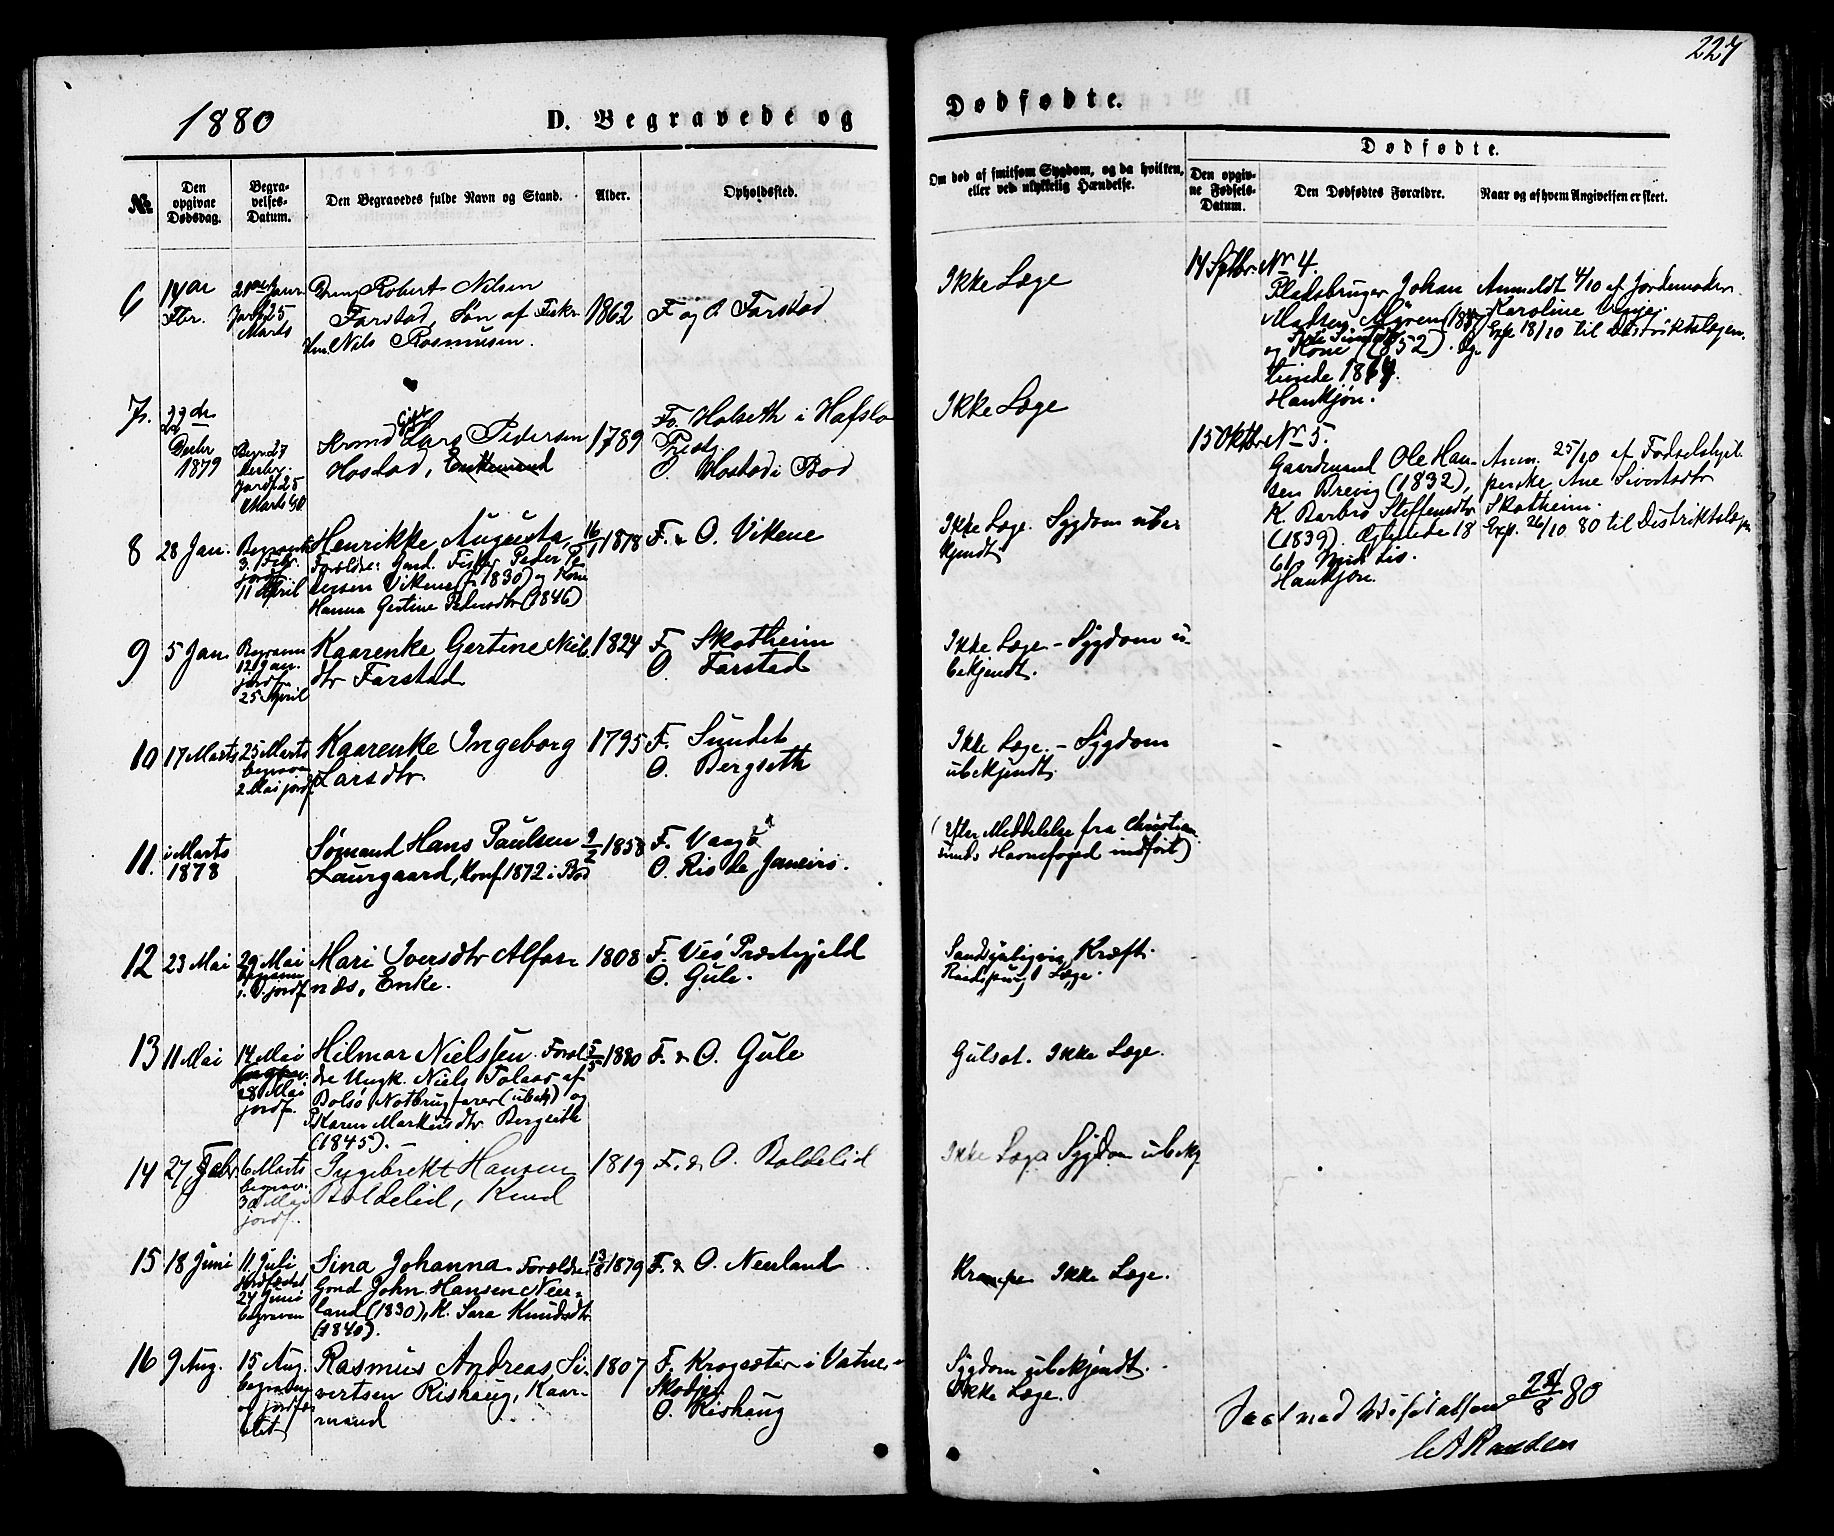 227
1880
D. Begravede og
Dødfødte.
No.
Den opgivne Dødsdag.
Begravelses-Datum.
Den Begravedes fulde Navn og Stand.
Alder.
Opholdssted.
Om død af smitsom Sygdom, og da hvilken,
eller ved ulykkelig Hændelse.
Dødfødte.
Den opgivne Fødsels-Datum.
Den Dødfødtes Forældre.
Naar og af hvem Angivelsen er skeet.
6
Fbr.
25
Marts
Dreng Robert Nilsen
Farstad, Søn af
Nils Rasmusen.
1862
F og O Farstad
Ikke Læge
7.
Decbr
1879
25
Marts 80
Lars Pedersen
Hostad, Enkemand
1789
Fr. Holseth i Hafslo
O. Hostad i Bod
Ikke Læge
8
28 Jan.
3. Febr.
jordf.
11 April
Henrikke Augusta,
Forældre: Gmd. Fisker Peder Pe-
dersen Vikene (f. 1830) og Kone
Hanna Gertine Pedersdtr (1846)
16/1 1878
F. & O. Vikene
Ikke Læge. Sygdom ube
kjendt
9
5 Jan
Begravn
12 Jan.
jordf.
25 April
Kaarenke Gertine Niels
dtr Farstad
1824
F. Skotheim
O. Farstad
Ikke Læge - Sygdom u-
bekjendt.
10
17 Marts
25 Marts
begraven
2 Mai jordf.
Kaarenke Ingeborg
Larsdtr
1795
F. Sundet
O. Bergseth
Ikke Læge. - Sygdom
ubekjendt.
11.
i Marts
1878
Sømand Hans Paulsen
Laurgaard, Konf. 1872 i Bod
9/2 1858
F. Vaagø
O. Rio de Janeiro.
(efter Meddelelse fra Christian
sunds Havnefoged indført)
12
23 Mai
29 Mai
begravn
jordf
Mari Iversdtr Alfar
næs, Enke.
1808
F. Veø Præstegjeld
O. Gule.
Sandsynligvis Kræft.
Læge.
13
11 Mai
14 Mai
28 Mai
jordf.
Hilmar Nielssen. Foræl
dre Ungk. Niels Tolaas af
Bolsø Notbrugfarer (ubek) og
P. Karen Markusdtr Bergseth
(1845).
5/5 1880
F. & O. Gule
Gulsot. Ikke Læge.
14
27 Febr
6 Marts
begrav.
30 Mai
jordf.
Ingebrekt Hansen
Boldelid, Kmd
1819
F. & O. Boldelid
Ikke Læge Sygdom ubekj
15
18 Juni
11 Juli
jordfæstet
24 Juni
begraven
Sina Johanna Forældre:
Gmd John Hansen Neer-
land (1830), K. Sara Knudsdtr
(1840).
13/8 1879
F. & O. Neerland
Krampe Ikke Læge.
16
9 Aug.
15 Aug.
begraven
og jordfæ
stet
Rasmus Andreas Si-
vertsen Rishaug, Kaar-
mand
1807
F. Krogsæter i Vatne, i
Skodje
O. Rishaug
Sygdom ubekjendt.
Ikke Læge.
14 Septbr. Nr 4.
Pladsbruger Johan
Madsen
og Kone (1852). Æg-
teviede 18
Hankjøn.
Anmeldt 4/10 af Jordemoder
Karoline Vinje.
Exp 18/10 til Distriktslægen.
15 Oktbr Nr 5.
Gaardmand Ole Han-
sen Brevig (1832),
K. Barbro Steffensdtr
(1839). Ægteviede 18
61
Hankjøn.
Anm. 25/10 af Fødselshjel-
perske Ane Sivertsdtr
Skotheim.
Exp. 26/10 80 til Distriktslægen
Seet ved Visitatsen 24/8 80